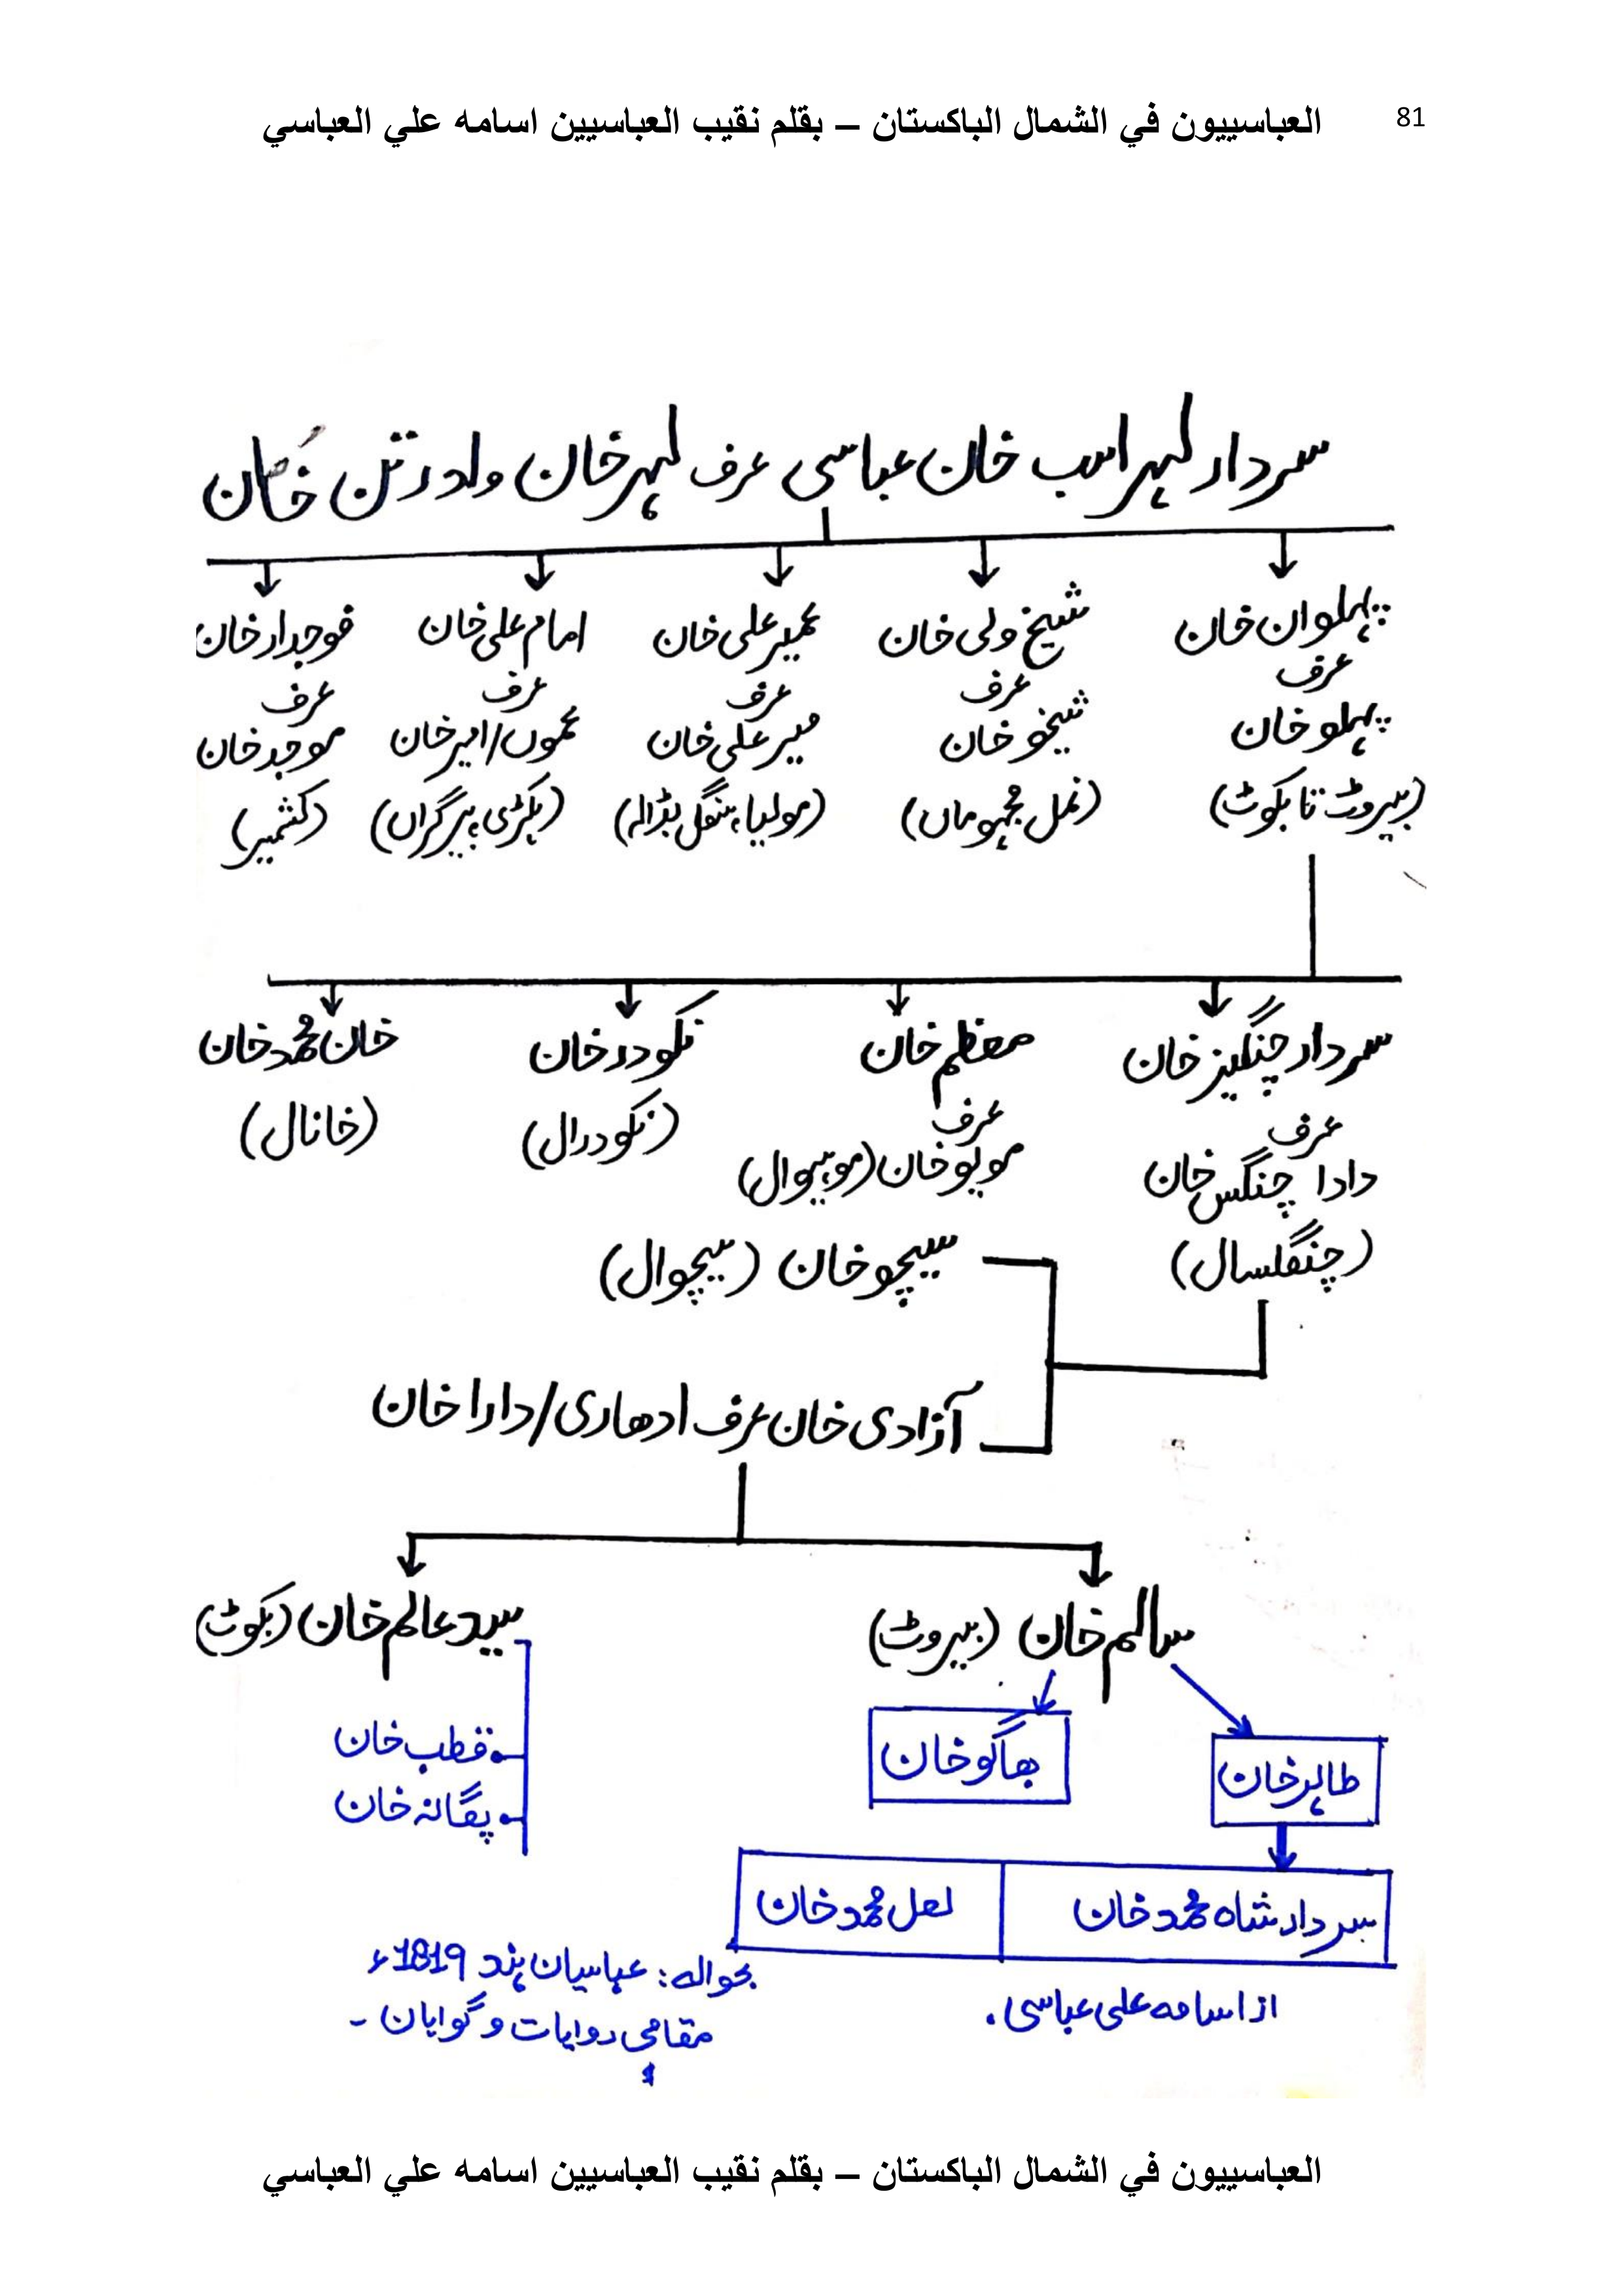 العباسييون في الشمال الباكستان – بقلم نقيب العباسيين اسامه علي العباسي
81
سردار لہراسب خان عباسی عرف لہر خان ولد رتن خان
پہلوان خان
عرف
پہلو خان
(بیروٹ تا بکوٹ)
شیخ ولی خان
عرف
شیخو خان
(نمل مجہوہاں)
عمیر علی خان
عرف
میر علی خان
(مولیا، ہنگل بڈالہ)
امام علی خان
عرف
محموں/امیر خان
(بکڑی پیر گراں)
فوجدار خان
عرف
موجد خان
(کشمیر)
سردار چنگیز خان
عرف
دادا چنگس خان
(چنگسال)
معظم خان
عرف
موپو خان (موہیوال)
نکودر خان
(نکودرال)
خان محمد خان
(خانال)
سیچو خان (سیچوال)
آزادی خان عرف ادھاری/دارا خان
سالم خان (بیروٹ)
سید عالم خان (بکوٹ)
طاہر خان
بھاگو خان
قطب خان
پگانہ خان
سردار شاہ محمد خان
لعل محمد خان
از اسامہ علی عباسی۔
بحوالہ: عباسیان ہند 1819ء
مقامی روایات و گواہان ۔
العباسييون في الشمال الباكستان – بقلم نقيب العباسيين اسامه علي العباسي